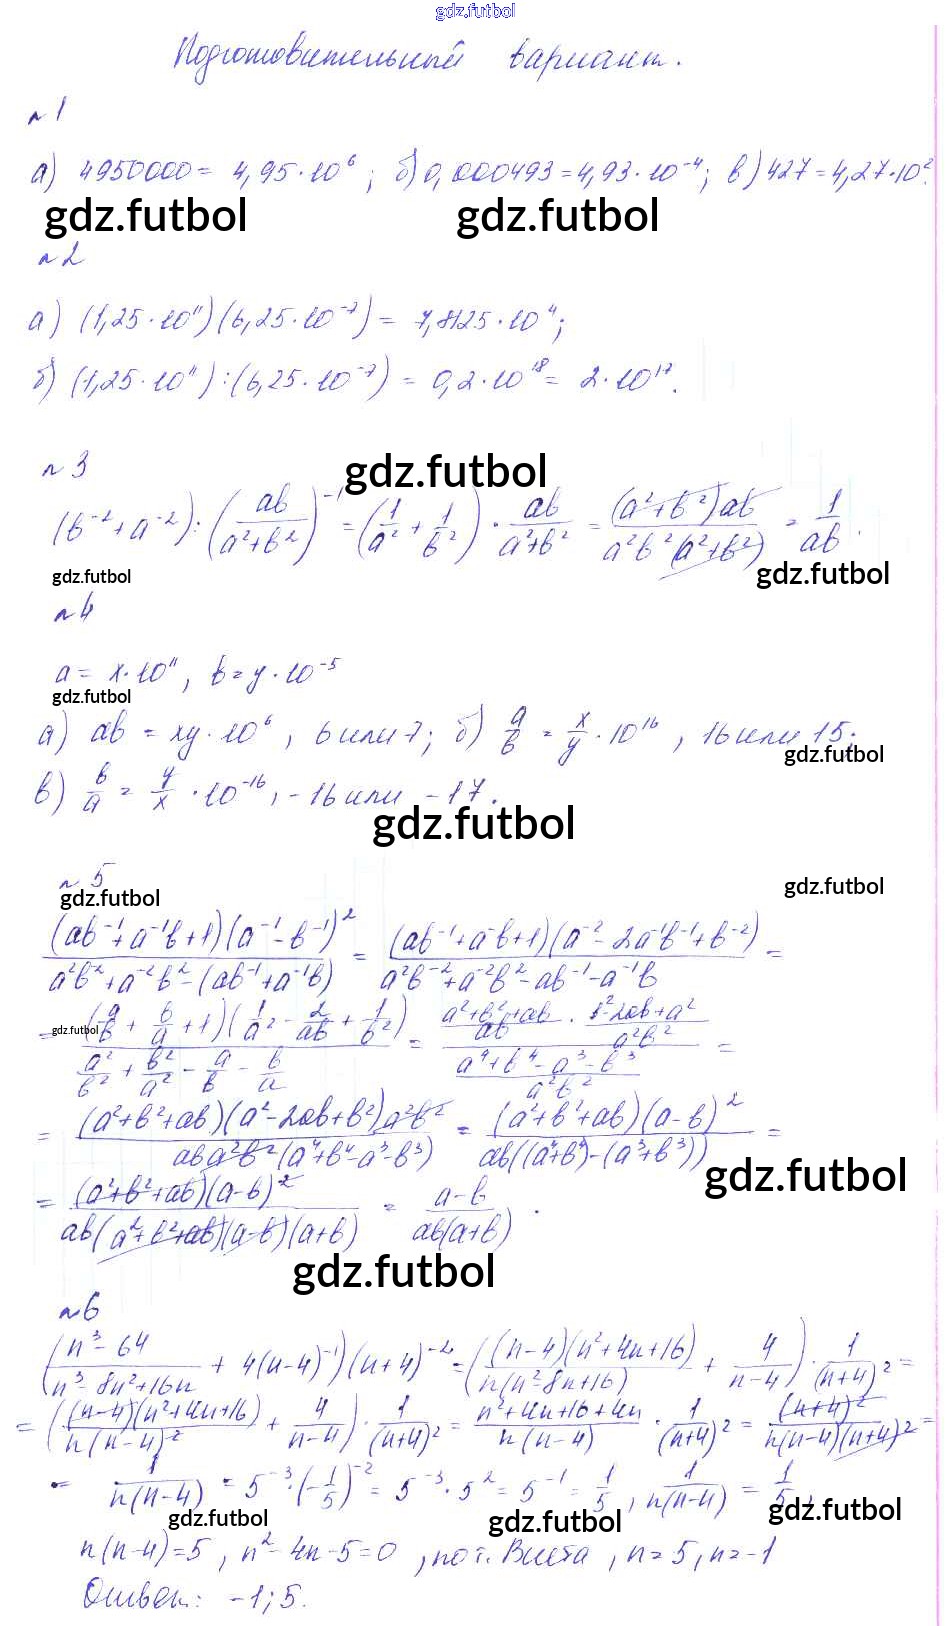 gdz.futbol
Подготовительный вариант.
№1
а) 4950000 = 4,95·10⁶ ; б) 0,000493 = 4,93·10⁻⁴; в) 427 = 4,27·10².
gdz.futbol gdz.futbol
№2
а) (1,25·10¹¹)(6,25·10⁻⁷) = 7,8125·10⁴;
б) (1,25·10¹¹):(6,25·10⁻⁷) = 0,2·10¹⁸ = 2·10¹⁷.
№3 gdz.futbol
(b⁻²+a⁻²):(ab/(a²+b²))⁻¹ = (1/a² + 1/b²)·ab/(a²+b²) = (a²+b²)ab/(a²b²(a²+b²)) = 1/ab.
gdz.futbol gdz.futbol
№4
a = x·10¹¹, b = y·10⁻⁵
gdz.futbol
а) ab = xy·10⁶, 6 или 7; б) a/b = x/y·10¹⁶, 16 или 15;
gdz.futbol
в) b/a = y/x·10⁻¹⁶, -16 или -17.
gdz.futbol
№5
gdz.futbol gdz.futbol
(ab⁻¹+a⁻¹b+1)(a⁻¹-b⁻¹)²/(a²b⁻²+a⁻²b²-(ab⁻¹+a⁻¹b)) = (ab⁻¹+a⁻b+1)(a⁻²-2a⁻¹b⁻¹+b⁻²)/(a²b⁻²+a⁻²b²-ab⁻¹-a⁻¹b) =
gdz.futbol
= (a/b + b/a + 1)(1/a² - 2/ab + 1/b²)/(a²/b² + b²/a² - a/b - b/a) = ((a²+b²+ab)/ab · (b²-2ab+a²)/a²b²)/((a⁴+b⁴-a³-b³)/a²b²) =
= (a²+b²+ab)(a²-2ab+b²)a²b²/(ab a²b²(a⁴+b⁴-a³-b³)) = (a²+b²+ab)(a-b)²/(ab((a⁴+b⁴)-(a³+b³))) =
gdz.futbol
= (a²+b²+ab)(a-b)²/(ab(a²+b²+ab)(a-b)(a+b)) = (a-b)/(ab(a+b)).
gdz.futbol
№6
((n³-64)/(n³-8n²+16n) + 4(n-4)⁻¹)(n+4)⁻² = ((n-4)(n²+4n+16)/(n(n²-8n+16)) + 4/(n-4))·1/(n+4)² =
= ((n-4)(n²+4n+16)/(n(n-4)²) + 4/(n-4))·1/(n+4)² = (n²+4n+16+4n)/(n(n-4))·1/(n+4)² = (n+4)²/(n(n-4)(n+4)²) =
= 1/(n(n-4)) = 5⁻³·(-1/5)⁻² = 5⁻³·5² = 5⁻¹ = 1/5, 1/(n(n-4)) = 1/5,
gdz.futbol gdz.futbol gdz.futbol
n(n-4)=5, n²-4n-5=0, по т. Виета, n=5, n=-1
Ответ: -1; 5.